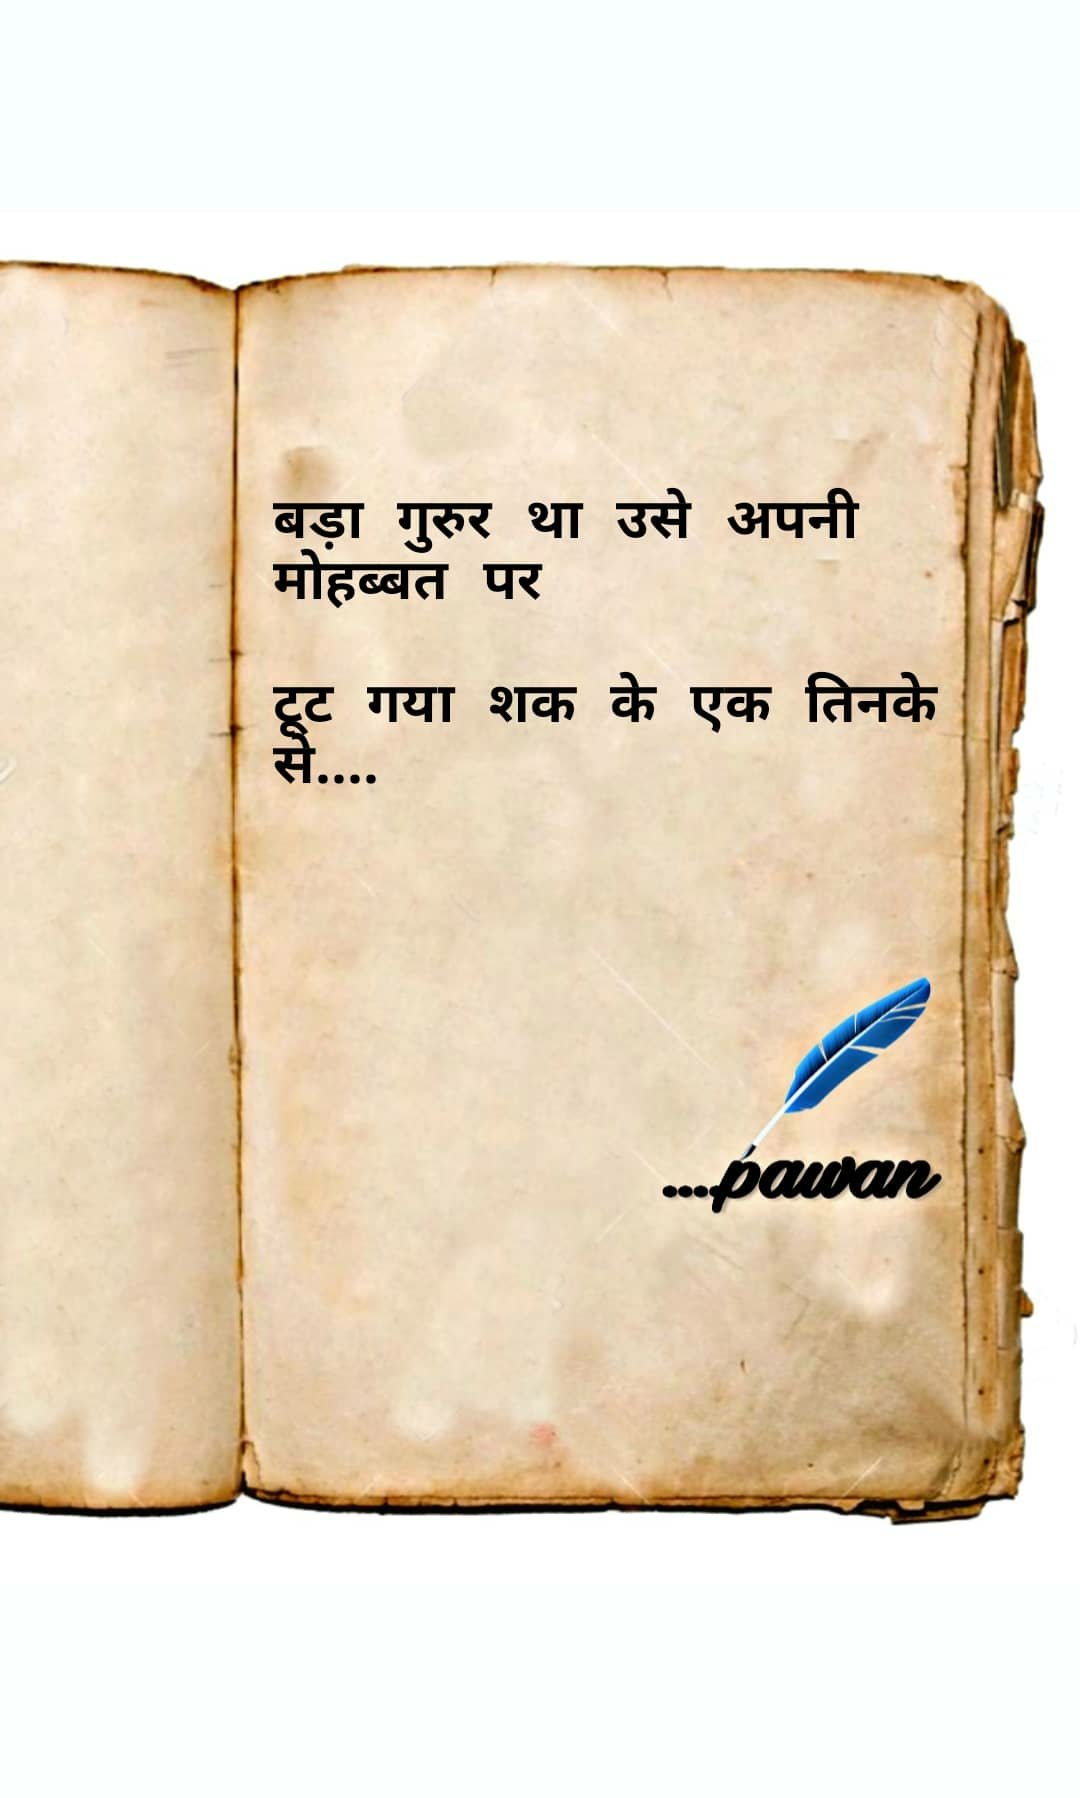 बड़ा गुरुर था उसे अपनी
मोहब्बत पर
टूट गया शक के एक तिनके
से....
....pawan